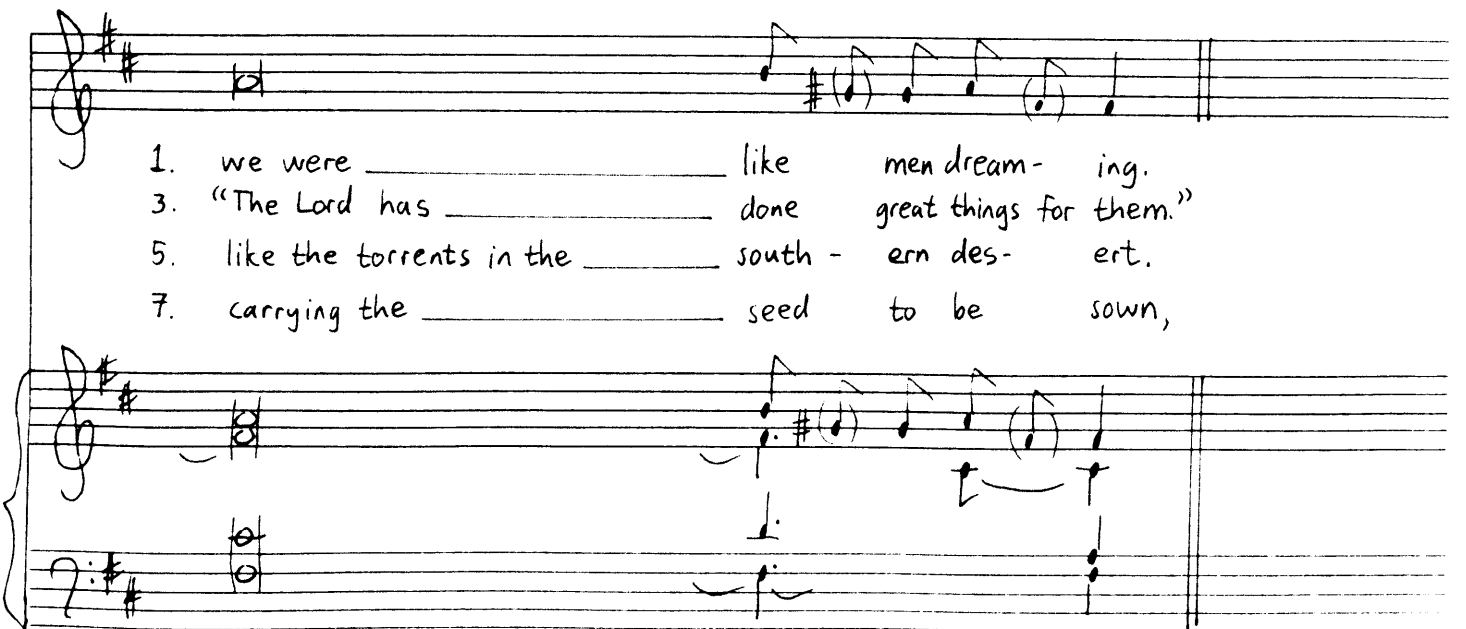 1. we were ____ like men dream- ing.
3. “The Lord has ____ done great things for them.”
5. like the torrents in the ____ south - ern des- ert.
7. carrying the ____ seed to be sown,